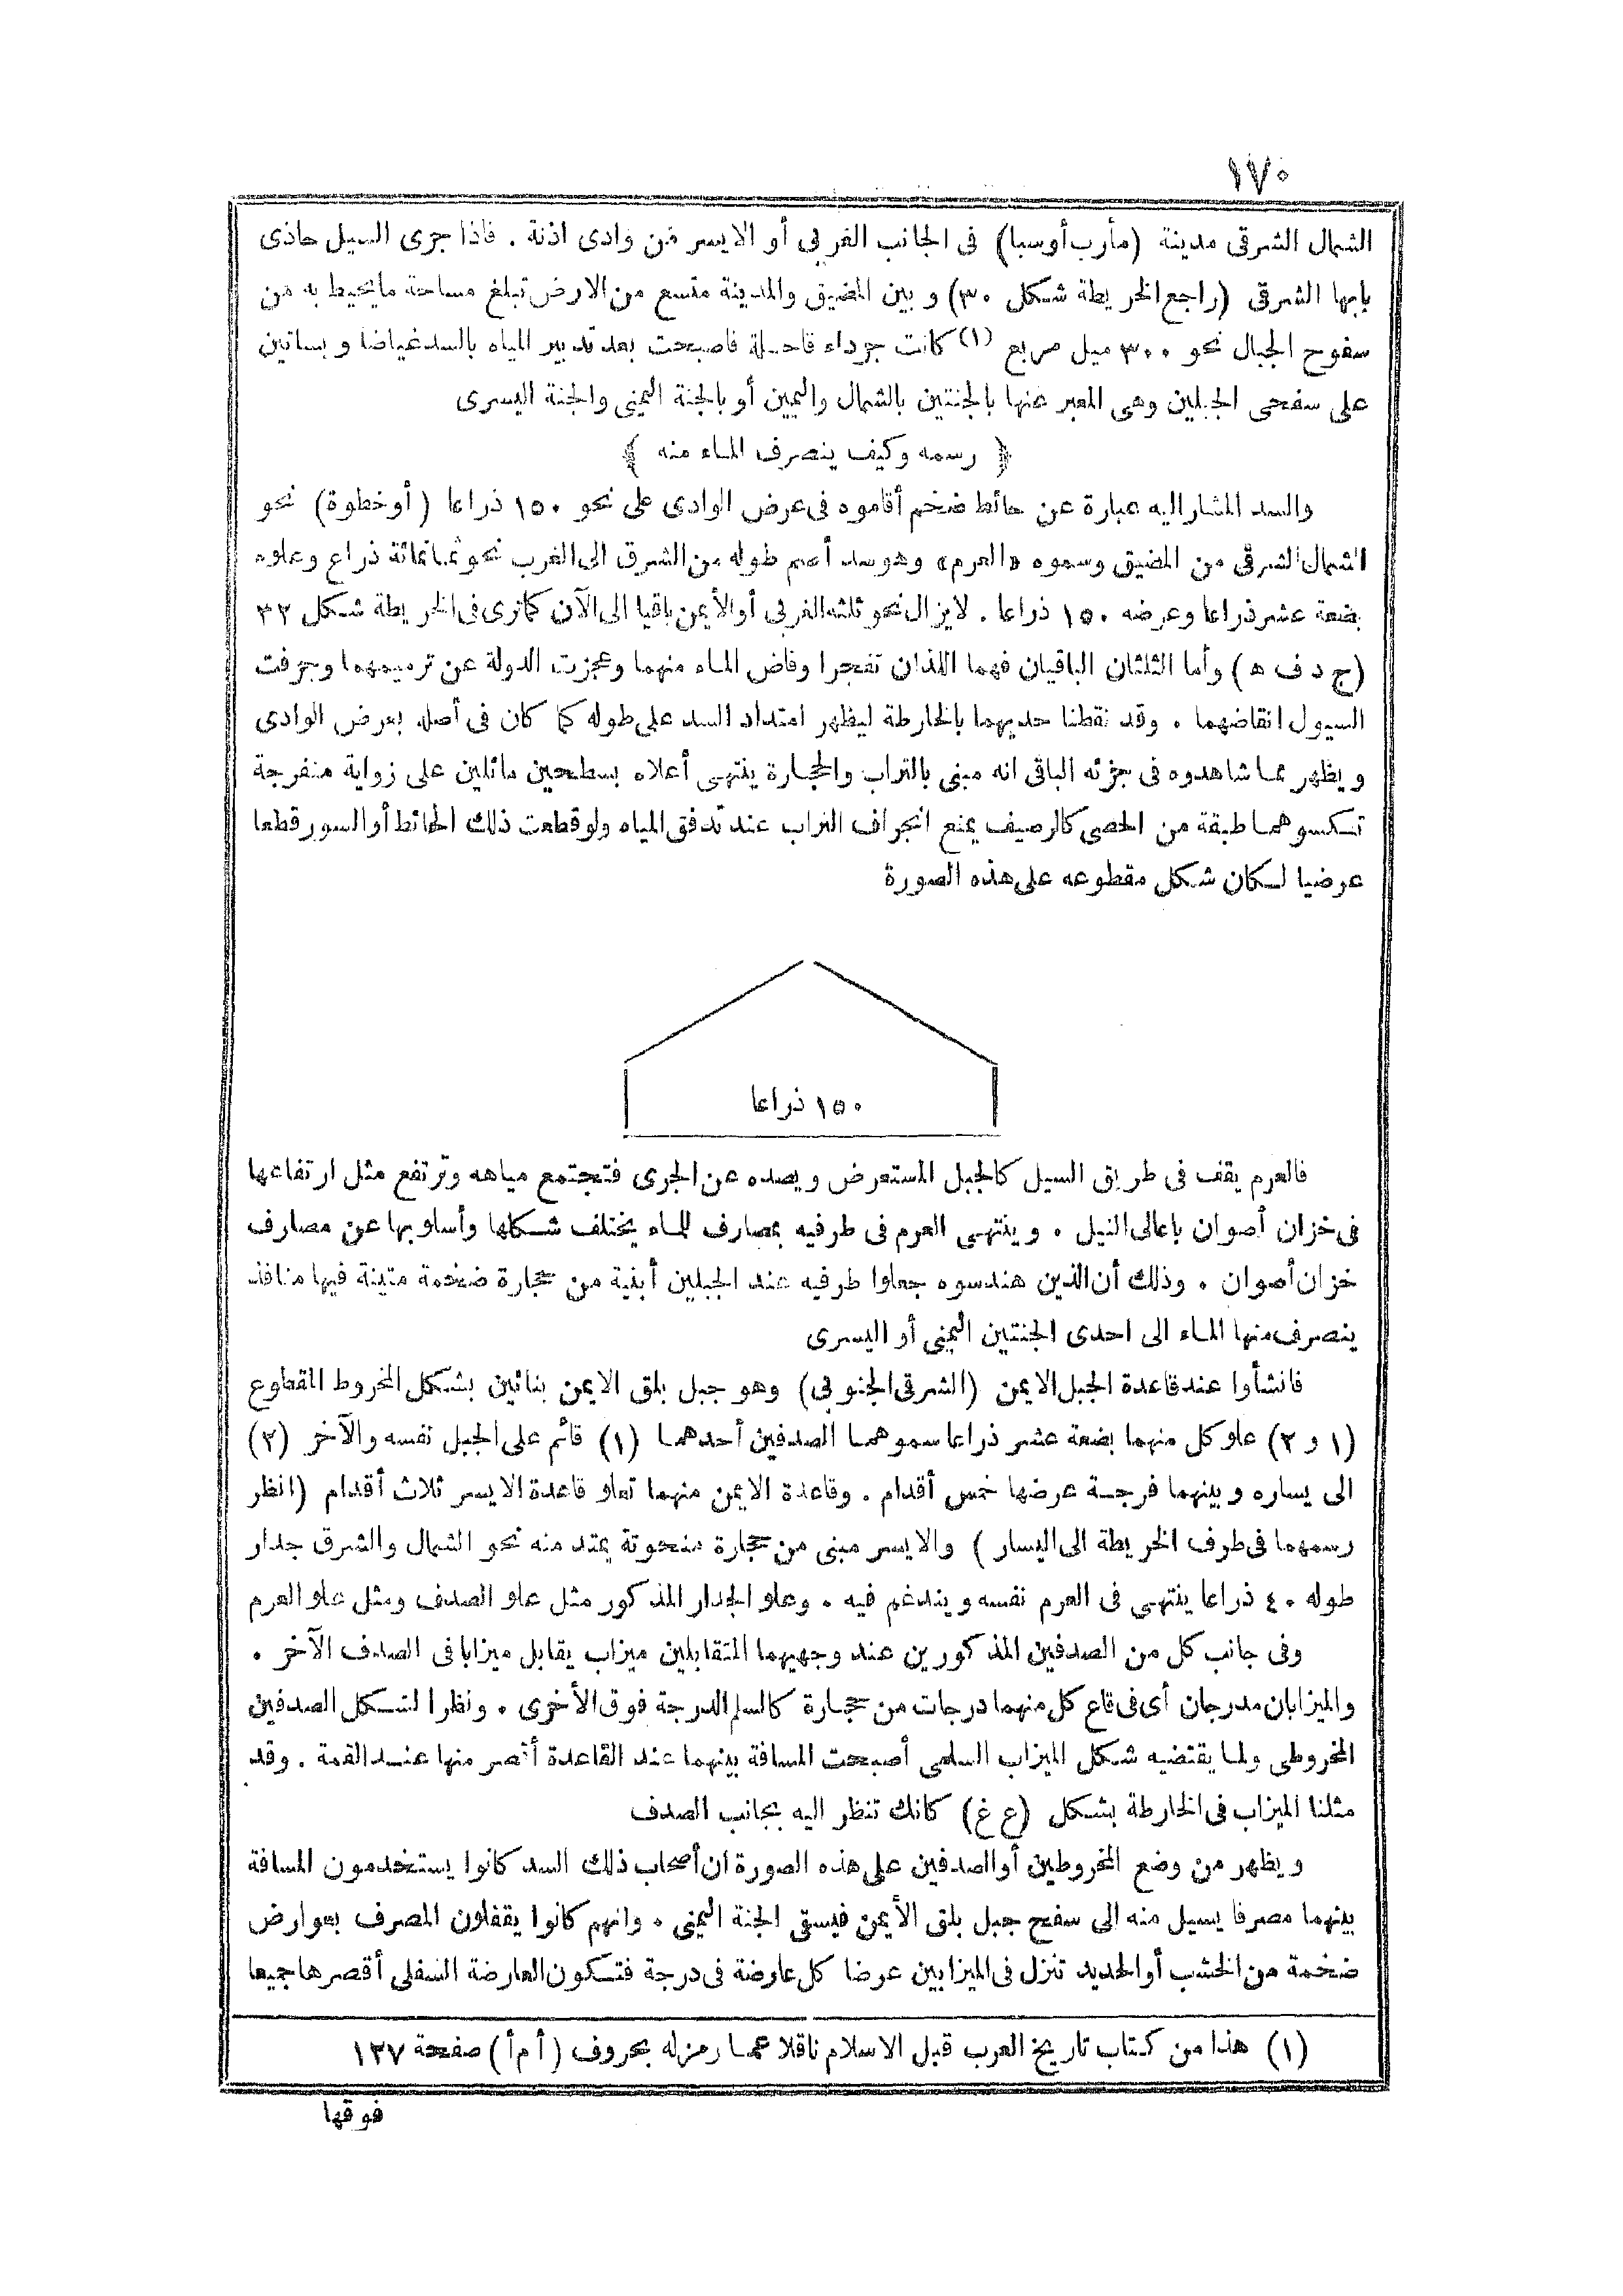 ١٧٠
الشمال الشرقى مدينة (مأرب أو سبا) فى الجانب الغربى أو الايسر من وادى اذنة . فاذا جرى السيل حاذى
بابها الشرقى (راجع الخريطة شكل ٣٠) و بين المضيق والمدينة متسع من الارض تبلغ مساحة ما يحيط به من
سفوح الجبال نحو ٣٠٠ ميل مربع (١) كانت جرداء قاحلة فاصبحت بعد تدبير المياه بالسد غياضا و بساتين
على سفحى الجبلين وهى المعبر عنها بالجنتين بالشمال واليمين أو بالجنة اليمنى والجنة اليسرى
﴿ رسمه وكيف ينصرف الماء منه ﴾
والسد المشار اليه عبارة عن حائط ضخم أقاموه فى عرض الوادى على نحو ١٥٠ ذراعا (أو خطوة) نحو
الشمال الشرقى من المضيق وسموه «العرم» وهو سد أصم طوله من الشرق الى الغرب نحو ثمانمائة ذراع وعلوه
بضعة عشر ذراعا وعرضه ١٥٠ ذراعا . لا يزال نحو ثلثه الغربى أو الأيمن باقيا الى الآن كما ترى فى الخريطة شكل ٣٢
(ج د ف ه) وأما الثلثان الباقيان فهما اللذان تفجرا وفاض الماء منهما وعجزت الدولة عن ترميمهما وجرفت
السيول انقاضهما . وقد نقطنا حديهما بالخارطة ليظهر امتداد السد على طوله كما كان فى أصله بعرض الوادى
و يظهر مما شاهدوه فى جزئه الباقى انه مبنى بالتراب والحجارة ينتهى أعلاه بسطحين مائلين على زواية منفرجة
تكسوهما طبقة من الحصى كالرصيف يمنع انجراف التراب عند تدفق المياه ولو قطعت ذلك الحائط أو السور قطعا
عرضيا لكان شكل مقطوعه على هذه الصورة
١٥٠ ذراعا
فالعرم يقف فى طريق السيل كالجبل المستعرض و يصده عن الجرى فتجتمع مياهه وترتفع مثل ارتفاعها
فى خزان أصوان باعالى النيل . و ينتهى العرم فى طرفيه بمصارف للماء يختلف شكلها وأسلوبها عن مصارف
خزان أصوان . وذلك أن الذين هندسوه جعلوا طرفيه عند الجبلين أبنية من حجارة ضخمة متينة فيها منافذ
ينصرف منها الماء الى احدى الجنتين اليمنى أو اليسرى
فانشأوا عند قاعدة الجبل الايمن (الشرقى الجنوبى) وهو جبل بلق الايمن بنائين بشكل المخروط المقطوع
(١ و ٢) علو كل منهما بضعة عشر ذراعا سموهما الصدفين أحدهما (١) قائم على الجبل نفسه والآخر (٢)
الى يساره و بينهما فرجة عرضها خمس أقدام . وقاعدة الايمن منهما تعلو قاعدة الايسر ثلاث أقدام (انظر
رسمهما فى طرف الخريطة الى اليسار) والايسر مبنى من حجارة منحوتة يمتد منه نحو الشمال والشرق جدار
طوله ٤٠ ذراعا ينتهى فى العرم نفسه و يندغم فيه . وعلو الجدار المذكور مثل علو الصدف ومثل علو العرم
وفى جانب كل من الصدفين المذكورين عند وجهيهما المتقابلين ميزاب يقابل ميزابا فى الصدف الآخر .
والميزابان مدرجان أى فى قاع كل منهما درجات من حجارة كالسلم الدرجة فوق الأخرى . ونظرا لشكل الصدفين
المخروطى ولما يقتضيه شكل الميزاب السلمى أصبحت المسافة بينهما عند القاعدة أقصر منها عند القمة . وقد
مثلنا الميزاب فى الخارطة بشكل (ع غ) كانك تنظر اليه بجانب الصدف
و يظهر من وضع المخروطين أو الصدفين على هذه الصورة ان أصحاب ذلك السد كانوا يستخدمون المسافة
بينهما مصرفا يسيل منه الى سفح جبل بلق الأيمن فيسقى الجنة اليمنى . وانهم كانوا يقفلون المصرف بعوارض
ضخمة من الخشب أو الحديد تنزل فى الميزابين عرضا كل عارضة فى درجة فتكون العارضة السفلى أقصرها جميعا
(١) هذا من كتاب تاريخ العرب قبل الاسلام ناقلا عما رمز له بحروف (أ م أ) صفحة ١٢٧
فوقها